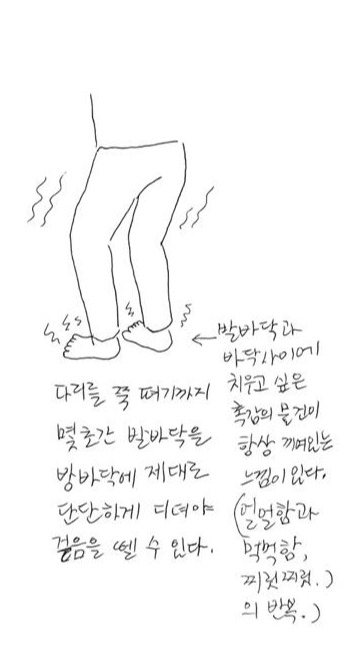 발바닥과
바닥사이에
치우고 싶은
촉감의 물건이
항상 끼여있는
느낌이 있다.
(얼얼함과
먹먹함,
찌릿찌릿.)
의 반복.)
다리를 쭉 떼기까지
몇초간 발바닥을
방바닥에 제대로
단단하게 디뎌야
걸음을 뗄 수 있다.